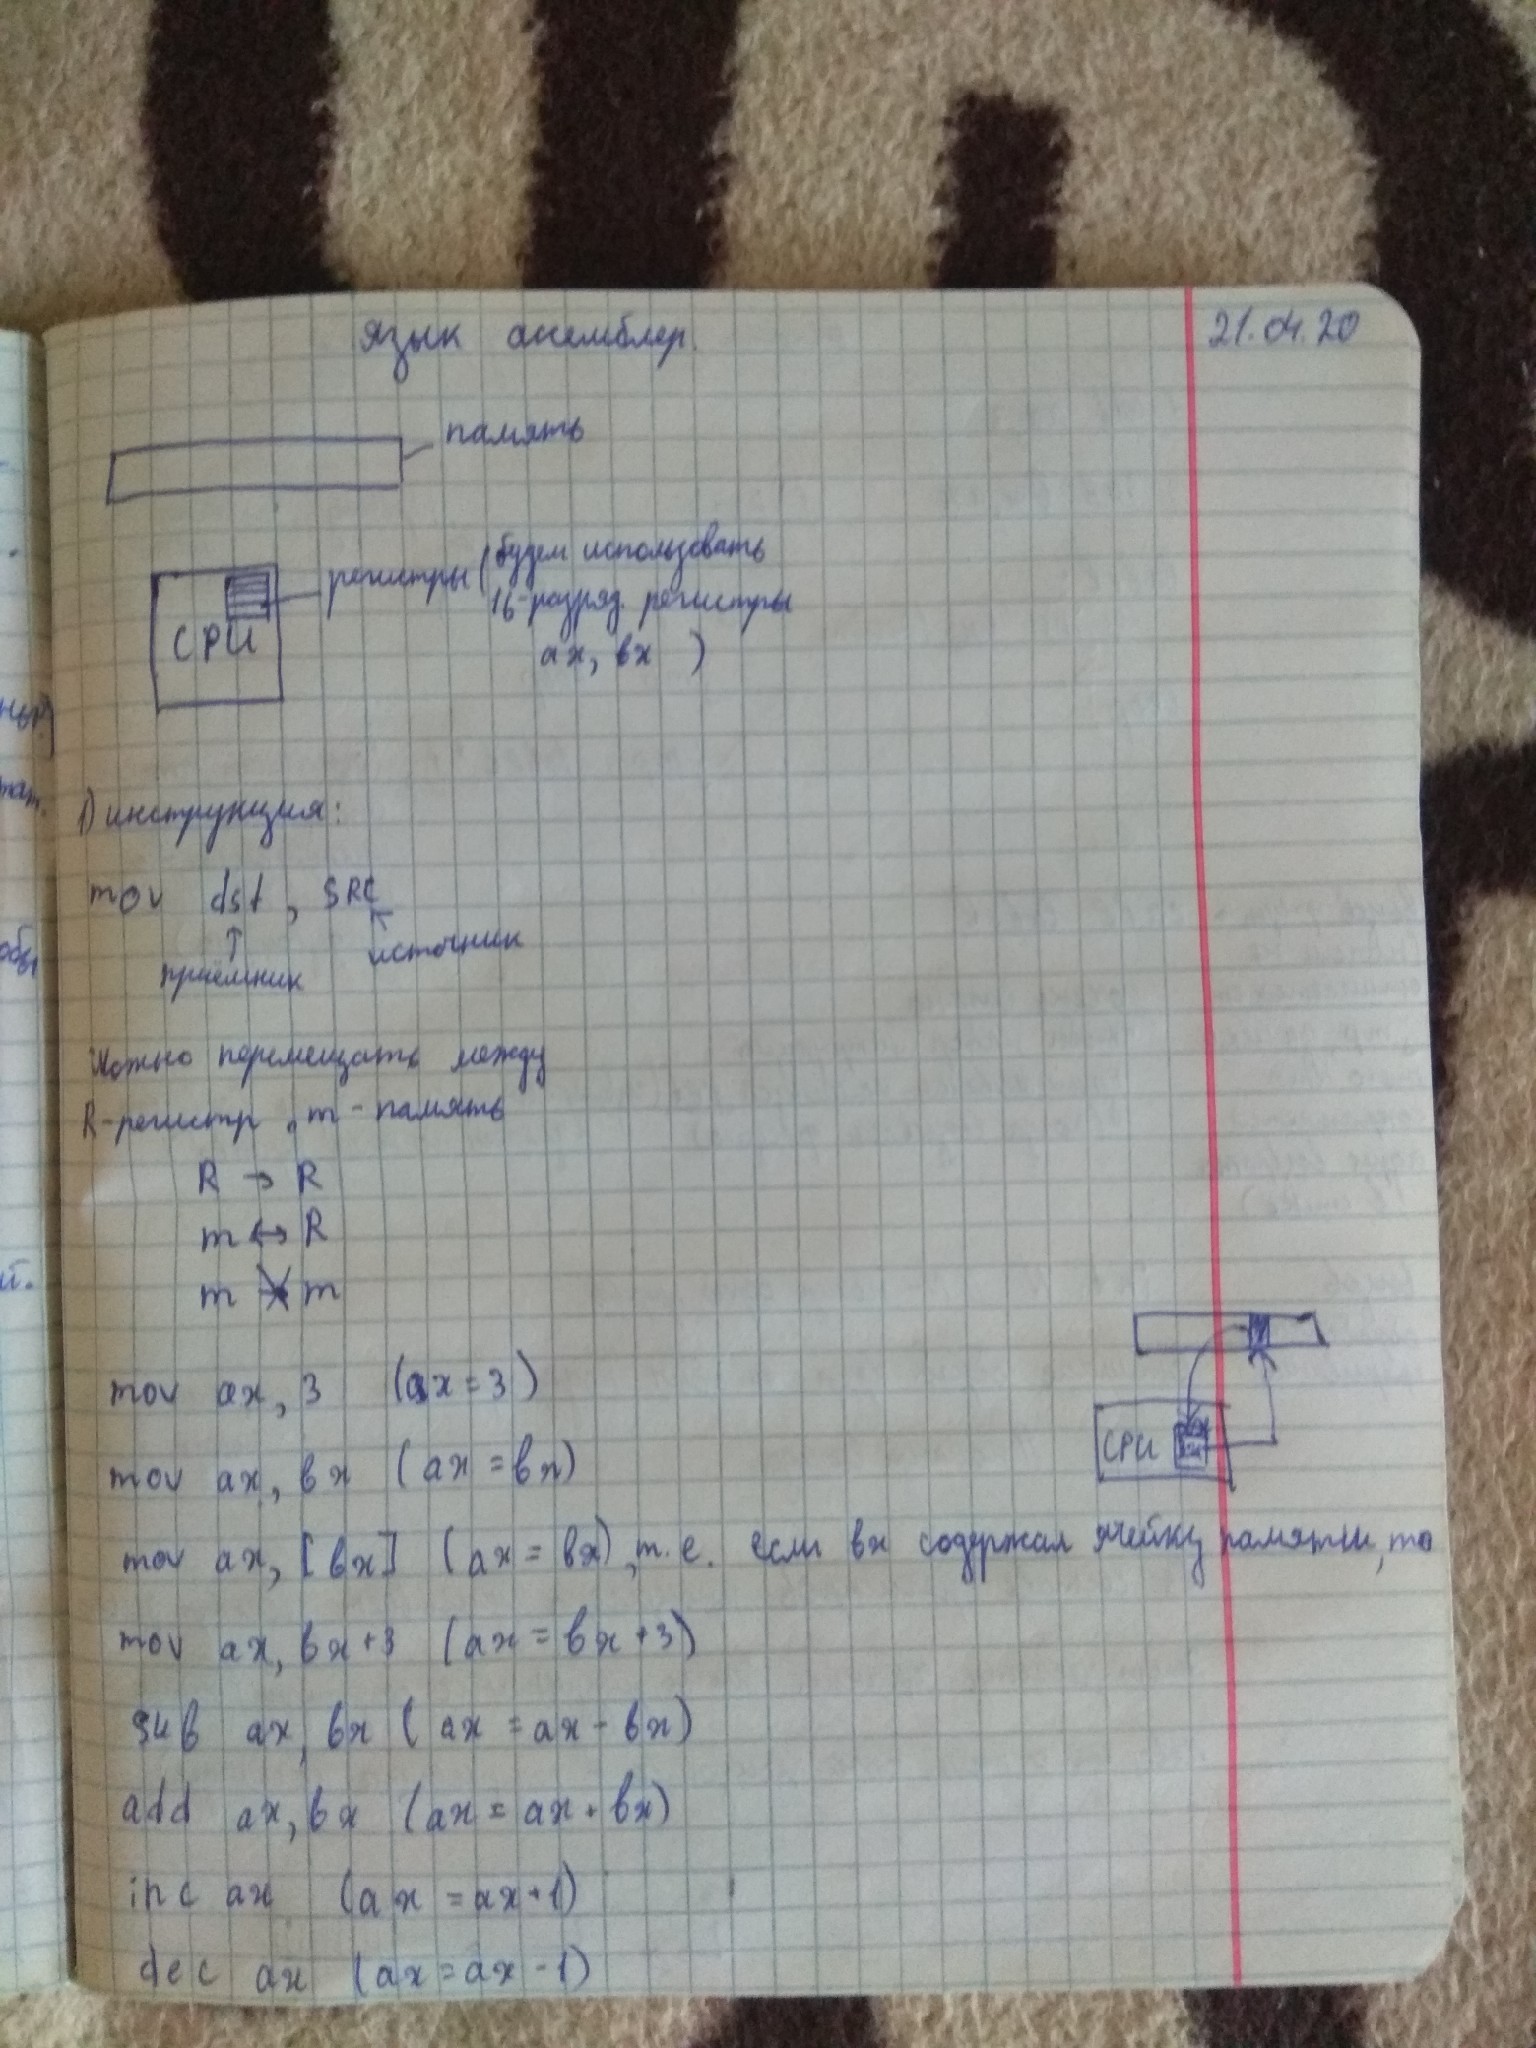 язык ассемблер.
21.04.20
память
регистры (будем использовать
16-разряд. регистры
ax, bx )
CPU
1) инструкция:
mov dst, SRC
приёмник
источник
Можно перемещать между
R-регистр, m-память
R → R
m ↔ R
m m
mov ax, 3 (ax = 3)
mov ax, bx (ax = bx)
CPU
mov ax, [bx] (ax = bx), т.е. если bx содержал ячейку памяти, то
mov ax, bx+3 (ax = bx+3)
sub ax, bx (ax = ax - bx)
add ax, bx (ax = ax + bx)
inc ax (ax = ax+1)
dec ax (ax = ax -1)